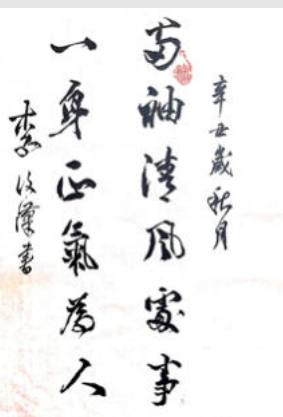 辛丑歲秋月
兩袖清風處事
一身正氣為人
李
書